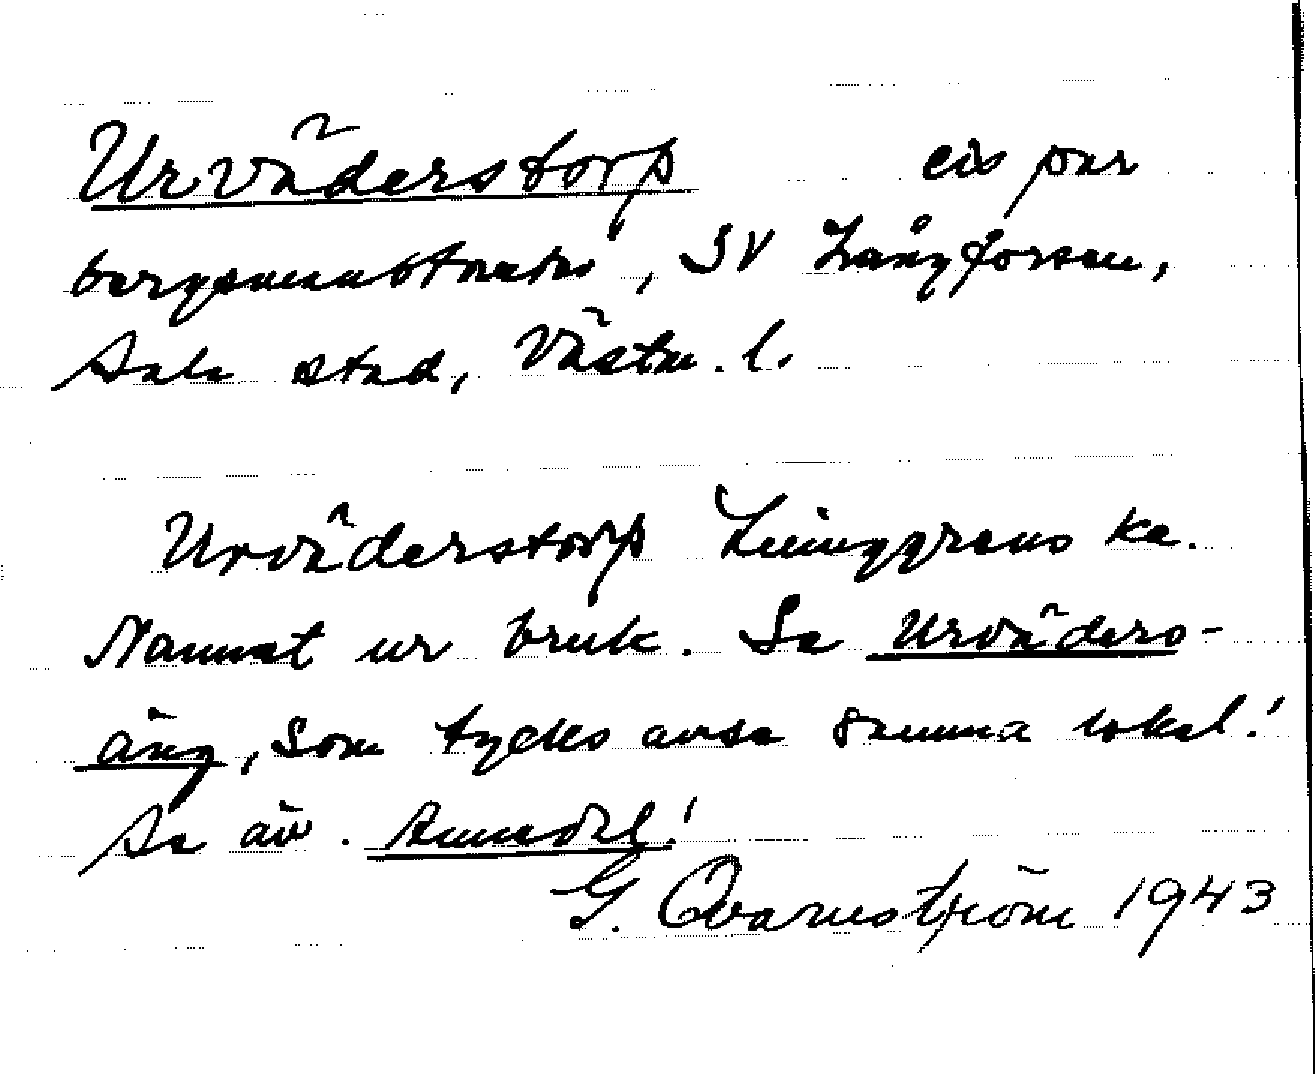 Urväderstorp ett par
bergsmanstorp, SV Långforsen,
Sala stad, Västm. l.
Urväderstorp Linnggrens ka.
Namnet ur bruk. Se Urväders-
äng, som tycks avse samma lokal!
Se äv.
G. Qvarnström 1943